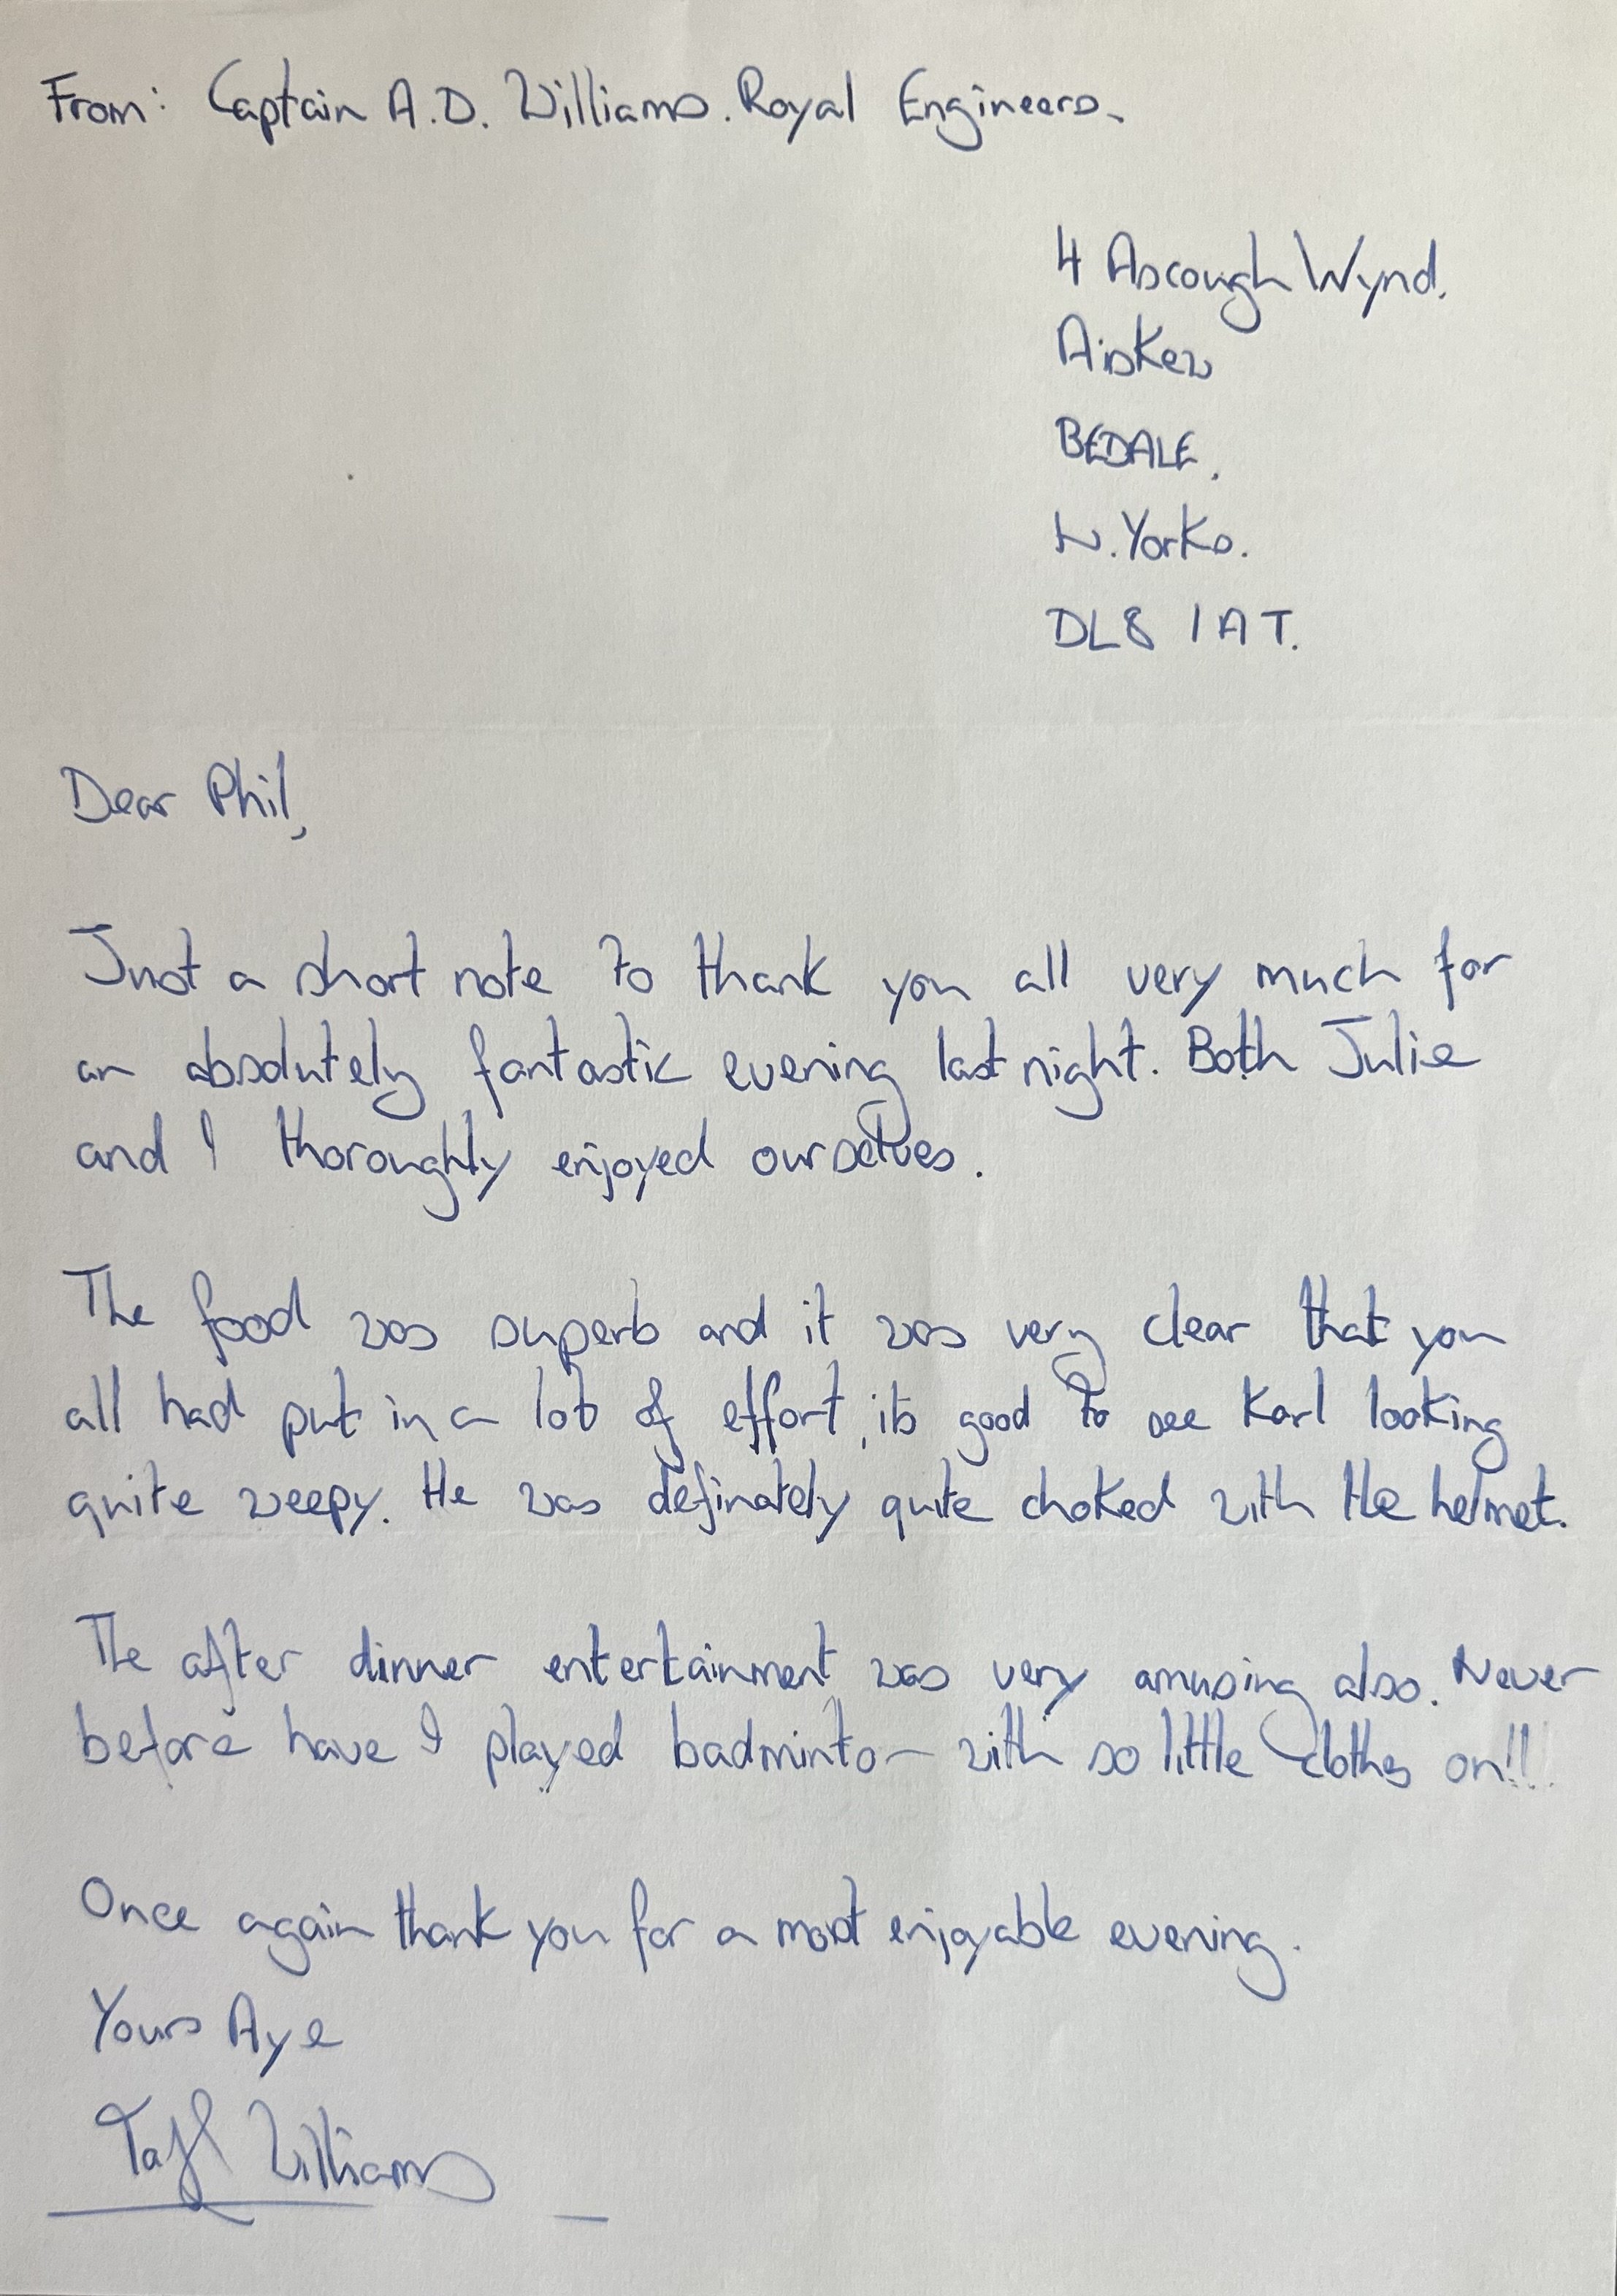 From: Captain A.D. Williams. Royal Engineers.
4 Ascough Wynd.
Aiskew
BEDALE.
N. Yorks.
DL8 1AT.
Dear Phil,
Just a short note to thank you all very much for
an absolutely fantastic evening last night. Both Julie
and I thoroughly enjoyed ourselves.
The food was superb and it was very clear that you
all had put in a lot of effort, its good to see Karl looking
quite weepy. He was definately quite choked with the helmet.
The after dinner entertainment was very amusing also. Never
before have I played badminton with so little clothes on!!!
Once again thank you for a most enjoyable evening.
Yours Aye
Taff Williams